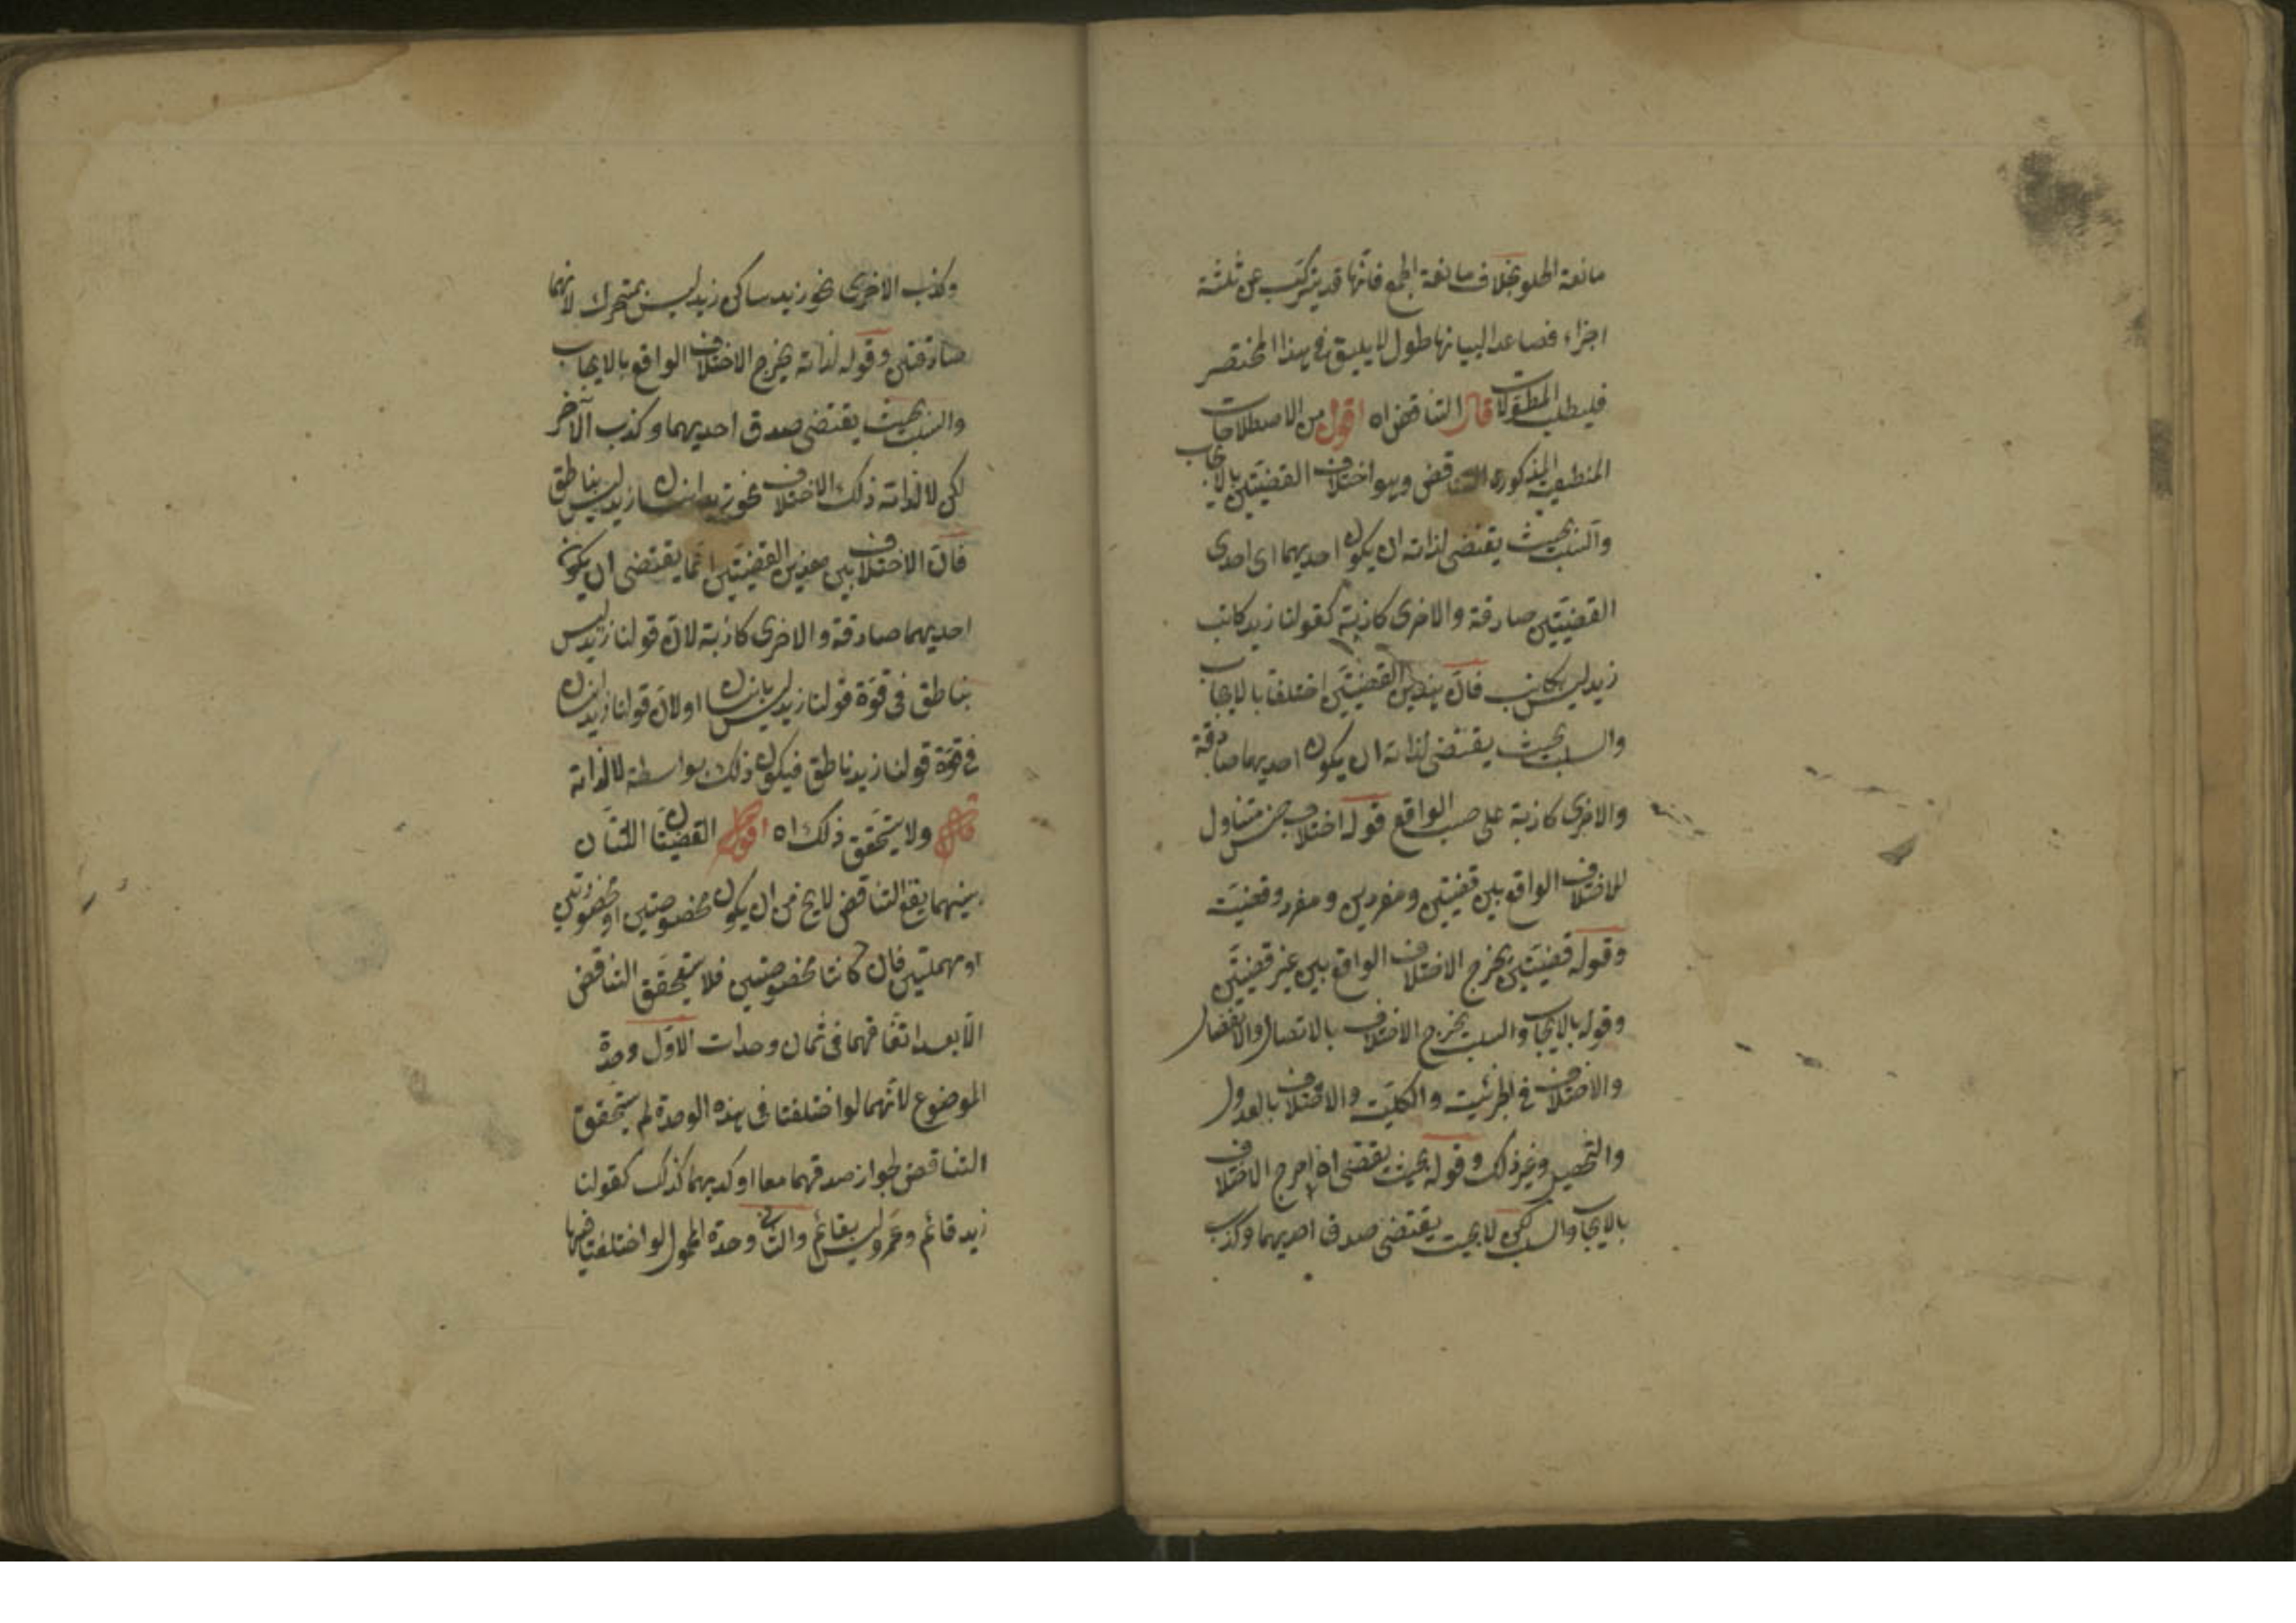 مانعة الخلو بخلاف مانعة الجمع فانها قد يتركب عن ثلثة
اجزاء فصاعدا لبيانها طول لا يليق في هذا المختصر
فليطلب المطولات قال التناقض اه اقول من الاصطلاحات
المنطقية المذكورة التناقض وهو اختلاف القضيتين بالايجاب
والسلب بحيث يقتضى لذاته ان يكون احديهما اى احدى
القضيتين صادقة والاخرى كاذبة كقولنا زيد كاتب
زيد ليس بكاتب فان هذين القضيتين اختلفا بالايجاب
والسلب بحيث يقتضى لذاته ان يكون احديهما صادقة
والاخرى كاذبة على حسب الواقع قوله اختلاف جنس متناول
للاختلاف الواقع بين قضيتين ومفردين ومفرد وقضية
وقوله قضيتين يخرج الاختلاف الواقع بين غير قضيتين
وقوله بالايجاب والسلب يخرج الاختلاف بالاتصال والانفصال
والاختلاف في الجزئية والكلية والاختلاف بالعدول
والتحصيل وغير ذلك وقوله بحيث يقتضى اه اخرج الاختلاف
بالايجاب والسلب لكن لا بحيث يقتضى صدق احديهما وكذب
وكذب الاخرى نحو زيد ساكن زيد ليس بمتحرك لانهما
صادقتين وقوله لذاته يخرج الاختلاف الواقع بالايجاب
والسلب بحيث يقتضى صدق احديهما وكذب الآخر
لكن لا لذاته ذلك الاختلاف نحو زيد انسان زيد ليس بناطق
فان الاختلاف بين هذين القضيتين انما يقتضى ان يكون
احديهما صادقة والاخرى كاذبة لان قولنا زيد ليس
بناطق فى قوة قولنا زيد ليس بانسان او لان قولنا زيد انسان
فى قوة قولنا زيد ناطق فيكون ذلك بواسطة لا لذاته
قال ولا يتحقق ذلك اه اقول القضيتان اللتان
بينهما يقع التناقض لا يخ من ان يكون مخصوصتين او محصورتين
او مهملتين فان كانتا مخصوصتين فلا يتحقق التناقض
الا بعد اتفاقهما فى ثمان وحدات الاول وحدة
الموضوع لانهما لو اختلفتا فى هذه الوحدة لم يتحقق
التناقض لجواز صدقهما معا او كذبهما كذلك كقولنا
زيد قائم وعمرو ليس بقائم والثانى وحدة المحمول لو اختلفتا فيها